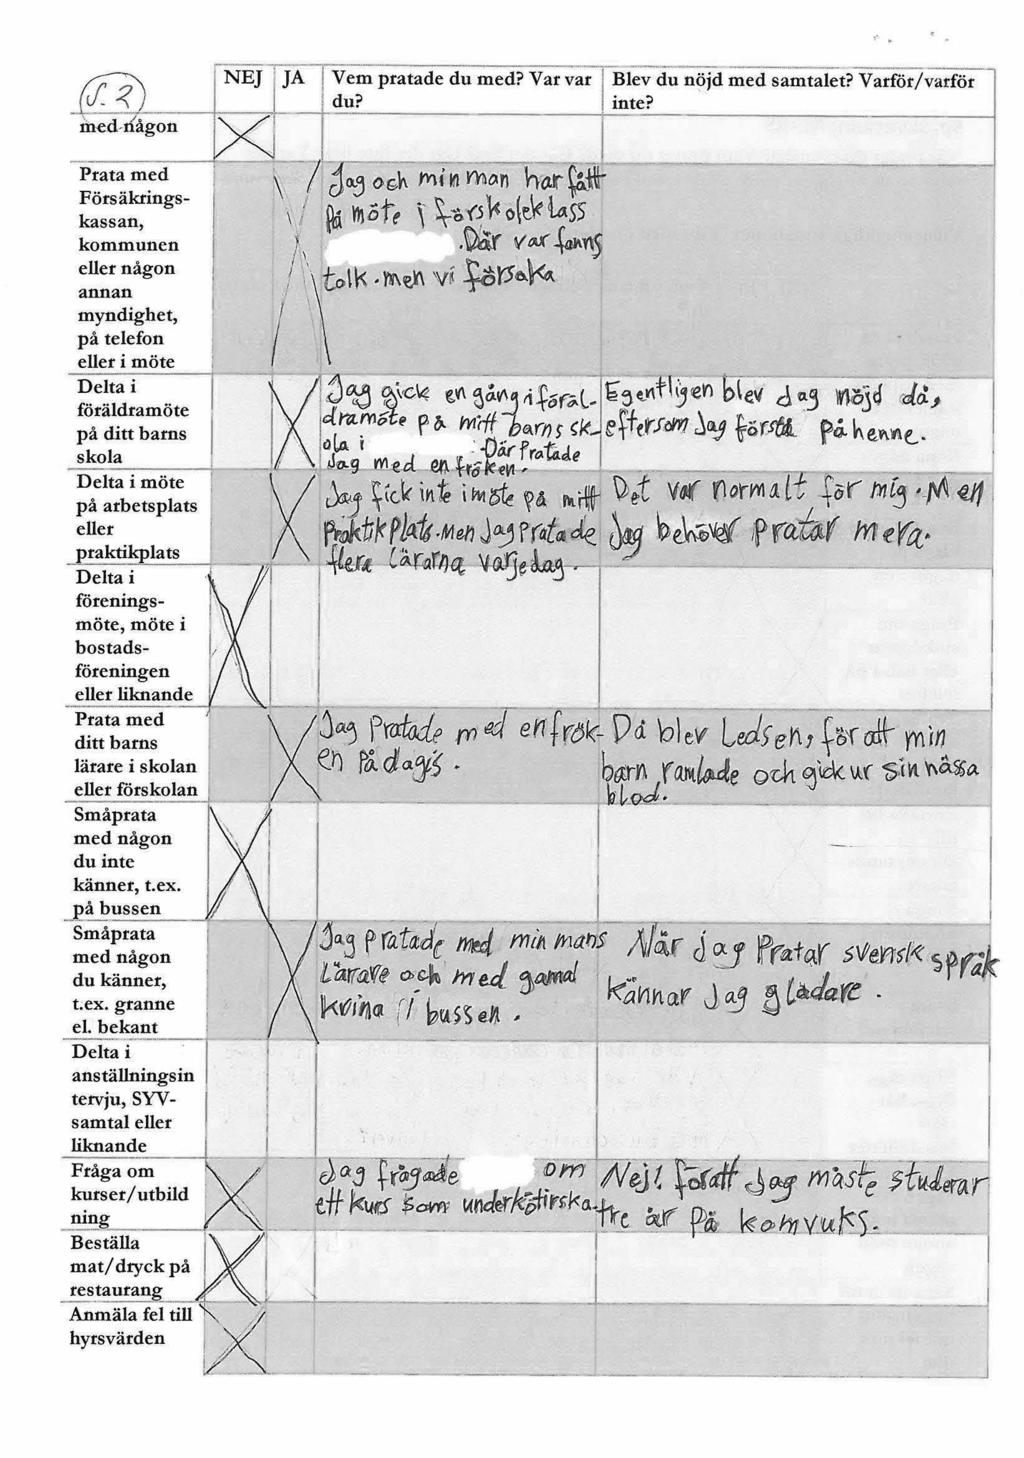 S. 2
NEJ
JA
Vem pratade du med? Var var
du?
Blev du nöjd med samtalet? Varför/varför
inte?
med någon
Prata med
Försäkrings-
kassan,
kommunen
eller någon
annan
myndighet,
på telefon
eller i möte
Jag och min man har fått
på möte i förskoleklass
.Där var fanns
tolk. men vi försaka
Delta i
föräldramöte
på ditt barns
skola
Jag gick en gång i föräl-
dramöte på mitt barns sk-
ola i . Där Pratade
Jag med en fröken.
Egentligen blev Jag nöjd då,
eftersom Jag förstå på henne.
Delta i möte
på arbetsplats
eller
praktikplats
Jag fick inte i möte på mitt
PraktikPlats. Men Jag Pratade
flera Lärarna varjedag.
Det var normalt för mig. Men
Jag behöver pratar mera.
Delta i
förenings-
möte, möte i
bostads-
föreningen
eller liknande
Prata med
ditt barns
lärare i skolan
eller förskolan
Jag Pratade med en frök-
en På dagis.
Då blev Ledsen, för att min
barn ramlade och gick ur sin nässa
blod.
Småprata
med någon
du inte
känner, t.ex.
på bussen
Småprata
med någon
du känner,
t.ex. granne
el. bekant
Jag pratade med min mans
Lärare och med gamal
kvina i bussen.
När jag Pratar svensk språk
Kännar Jag gladare.
Delta i
anställningsin
tervju, SYV-
samtal eller
liknande
Fråga om
kurser/utbild
ning
Jag frågade om
ett kurs som underkötirska.
Nej! föratt Jag måste studerar
tre år på komvuks.
Beställa
mat/dryck på
restaurang
Anmäla fel till
hyrsvärden